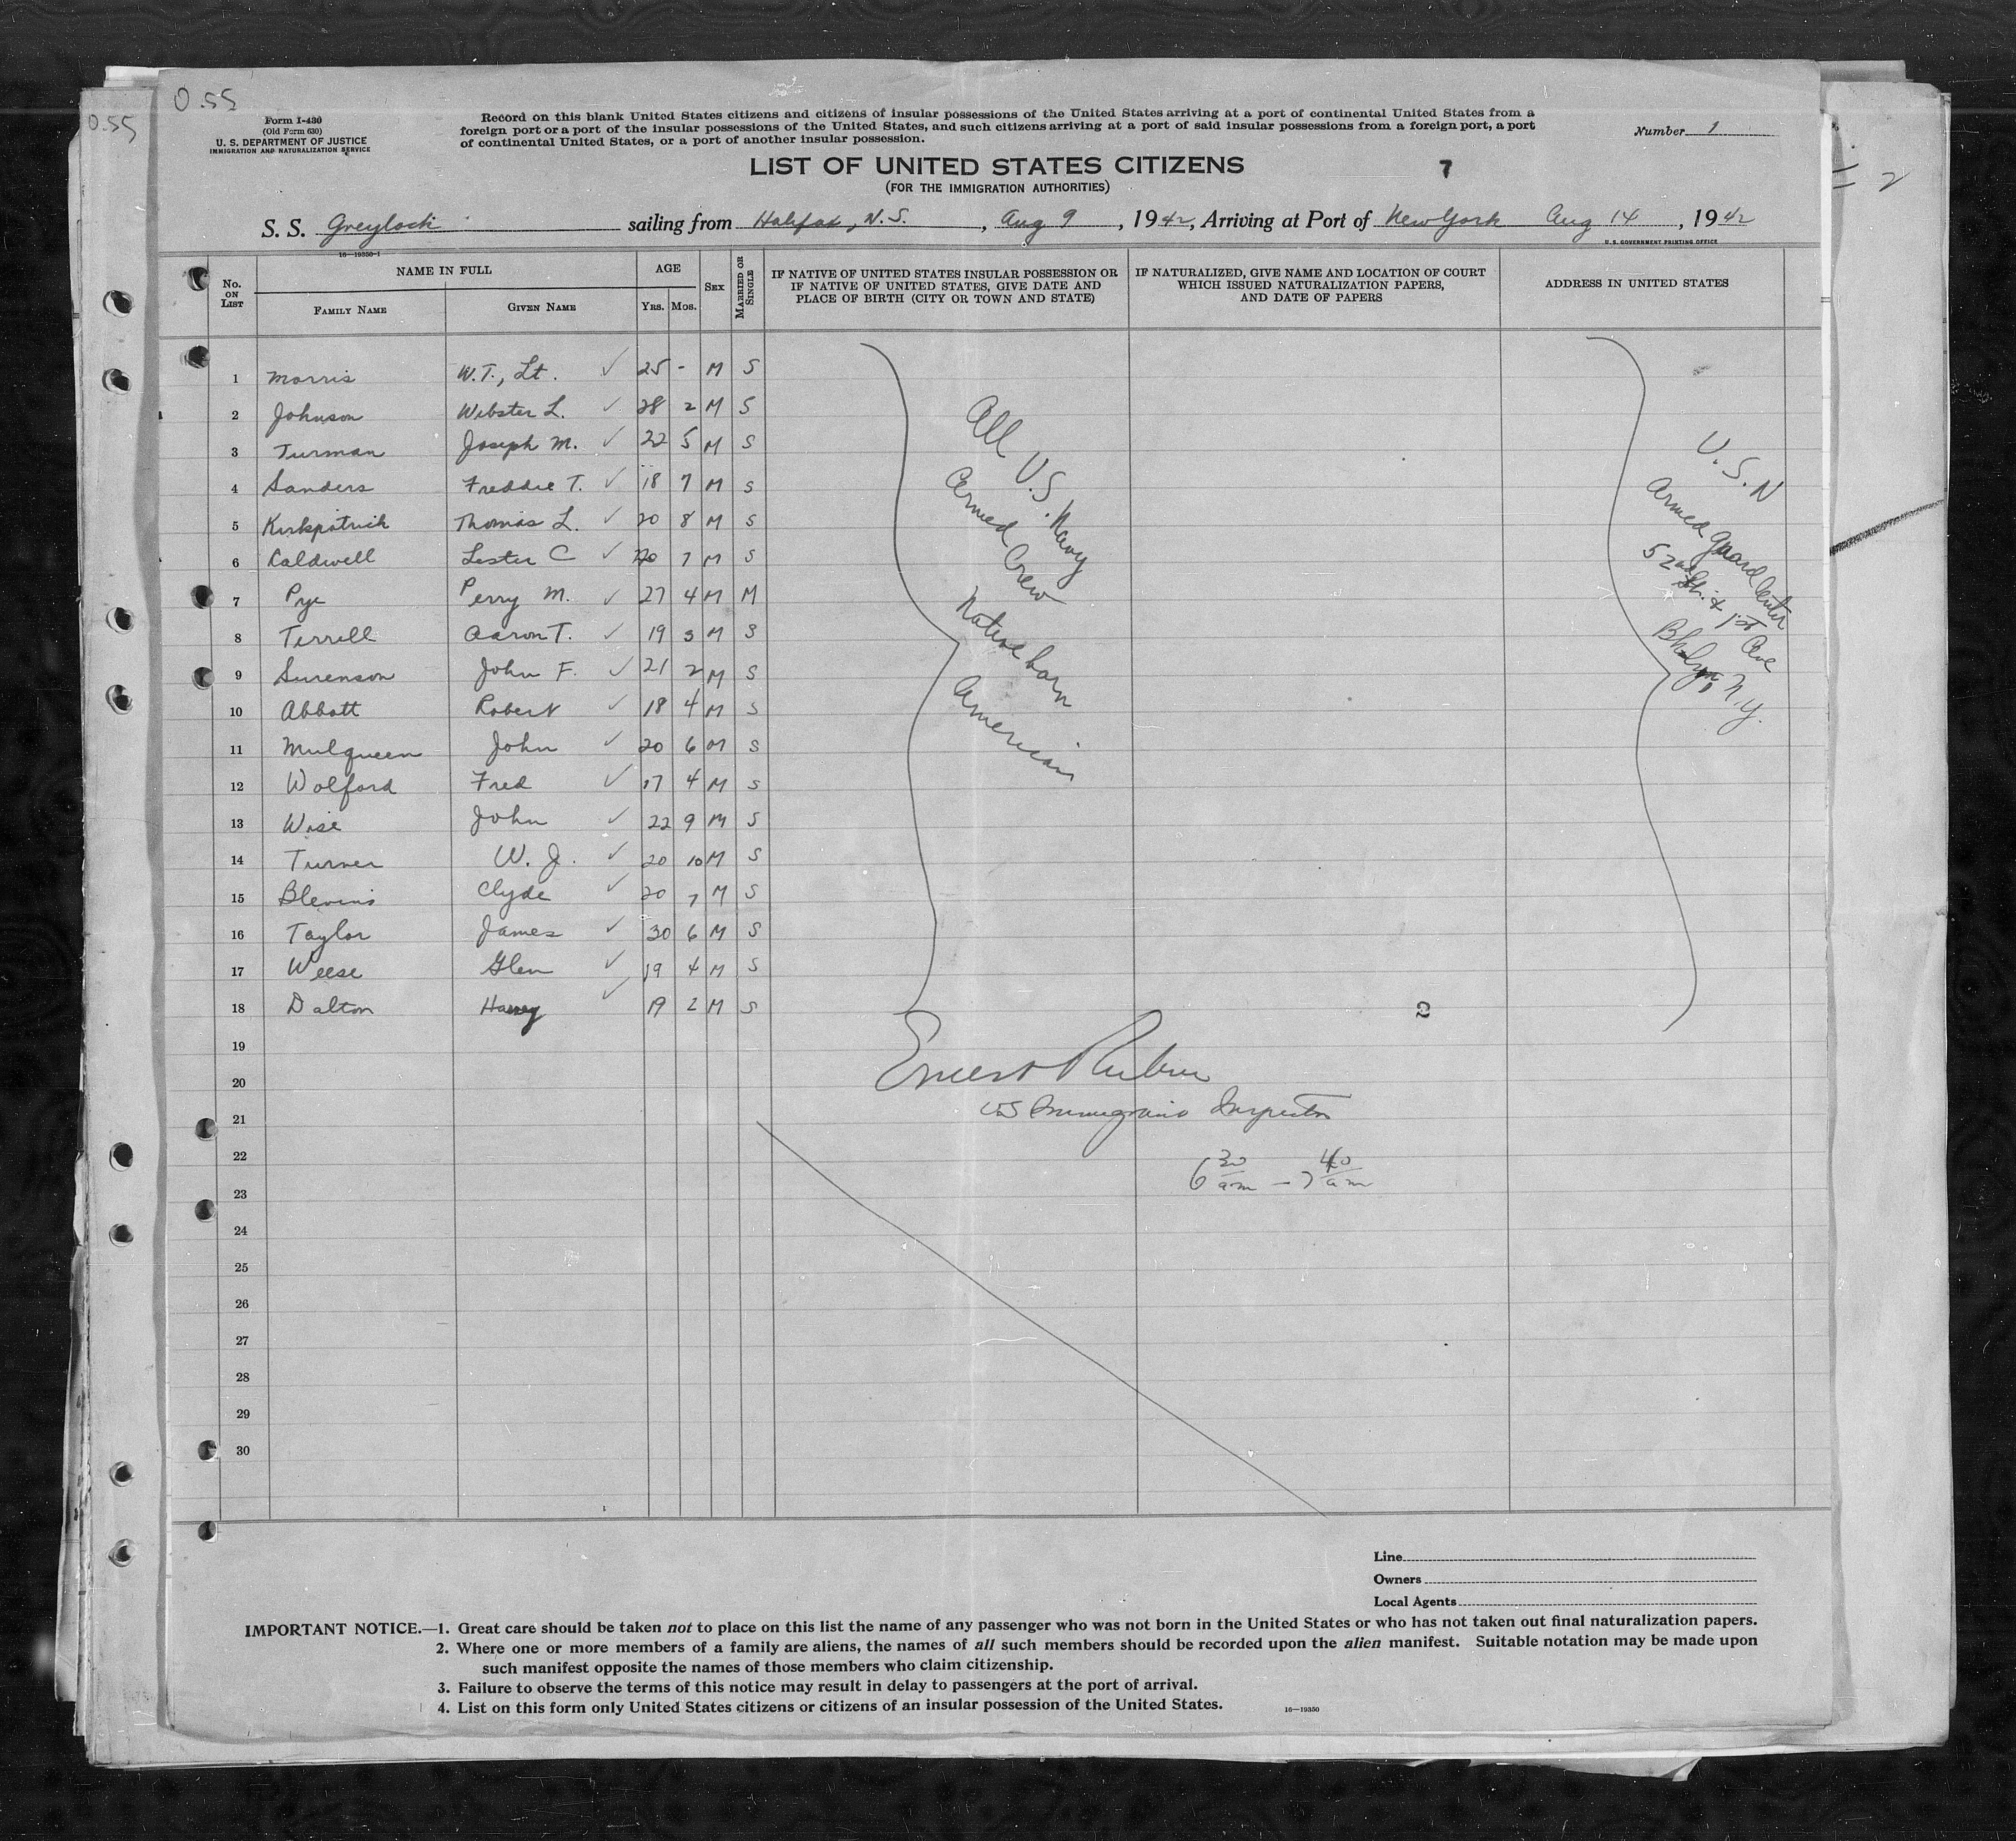 0.55
0.55
Form I-430
(Old Form 630)
U. S. DEPARTMENT OF JUSTICE
IMMIGRATION AND NATURALIZATION SERVICE
Record on this blank United States citizens and citizens of insular possessions of the United States arriving at a port of continental United States from a
foreign port or a port of the insular possessions of the United States, and such citizens arriving at a port of said insular possessions from a foreign port, a port
of continental United States, or a port of another insular possession.
Number 1
LIST OF UNITED STATES CITIZENS
7
(FOR THE IMMIGRATION AUTHORITIES)
2
S. S. Greylock sailing from Halifax, N.S., Aug 9, 1942, Arriving at Port of New York Aug 14, 1942
16—19350-1
U. S. GOVERNMENT PRINTING OFFICE
No. ON LIST
NAME IN FULL
FAMILY NAME
GIVEN NAME
AGE
YRS.
MOS.
SEX
MARRIED OR SINGLE
IF NATIVE OF UNITED STATES INSULAR POSSESSION OR
IF NATIVE OF UNITED STATES, GIVE DATE AND
PLACE OF BIRTH (CITY OR TOWN AND STATE)
IF NATURALIZED, GIVE NAME AND LOCATION OF COURT
WHICH ISSUED NATURALIZATION PAPERS,
AND DATE OF PAPERS
ADDRESS IN UNITED STATES
1 Morris W.T., Lt. ✓ 25 - M S
2 Johnson Webster L. ✓ 28 2 M S
3 Turman Joseph M. ✓ 22 5 M S
4 Sanders Freddie T. ✓ 18 7 M S
5 Kirkpatrick Thomas L. ✓ 20 8 M S
6 Caldwell Lester C ✓ 20 7 M S
7 Pye Perry M. ✓ 27 4 M M
8 Terrell Aaron T. ✓ 19 3 M S
9 Surenson John F. ✓ 21 2 M S
10 Abbott Robert ✓ 18 4 M S
11 Mulqueen John ✓ 20 6 M S
12 Wolford Fred ✓ 17 4 M S
13 Wise John ✓ 22 9 M S
14 Turner W. J. ✓ 20 10 M S
15 Blevins Clyde ✓ 20 7 M S
16 Taylor James ✓ 30 6 M S
17 Weese Glen ✓ 19 4 M S
18 Dalton Harry ✓ 19 2 M S
All U.S. Navy
Armed Crew
Native born
American
U.S.N
Armed Guard Center
52nd St. & 1st Ave
Bklyn, N.Y.
2
19
20
21
22
23
24
25
26
27
28
29
30
Ernest Rubin
US Immigrant Inspector
6 30 am - 7 40 am
Line
Owners
Local Agents
IMPORTANT NOTICE.—1. Great care should be taken not to place on this list the name of any passenger who was not born in the United States or who has not taken out final naturalization papers.
2. Where one or more members of a family are aliens, the names of all such members should be recorded upon the alien manifest. Suitable notation may be made upon
such manifest opposite the names of those members who claim citizenship.
3. Failure to observe the terms of this notice may result in delay to passengers at the port of arrival.
4. List on this form only United States citizens or citizens of an insular possession of the United States.
16—19350